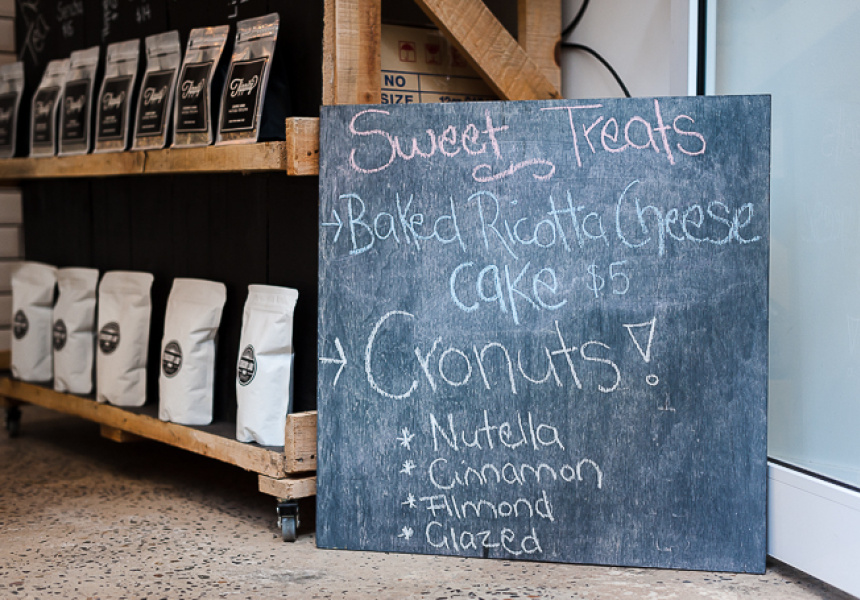 $14
NO
SIZE
Sweet Treats
→Baked Ricotta Cheese
cake $5
→Cronuts!
* Nutella
* Cinnamon
* Almond
* Glazed